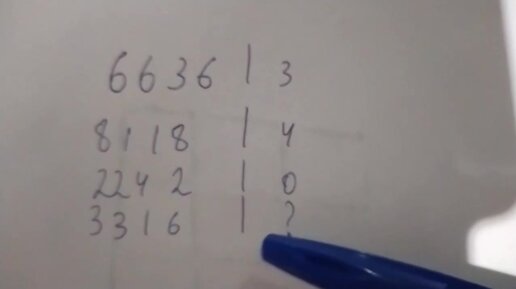 6636 | 3
8118 | 4
2242 | 0
3316 | ?